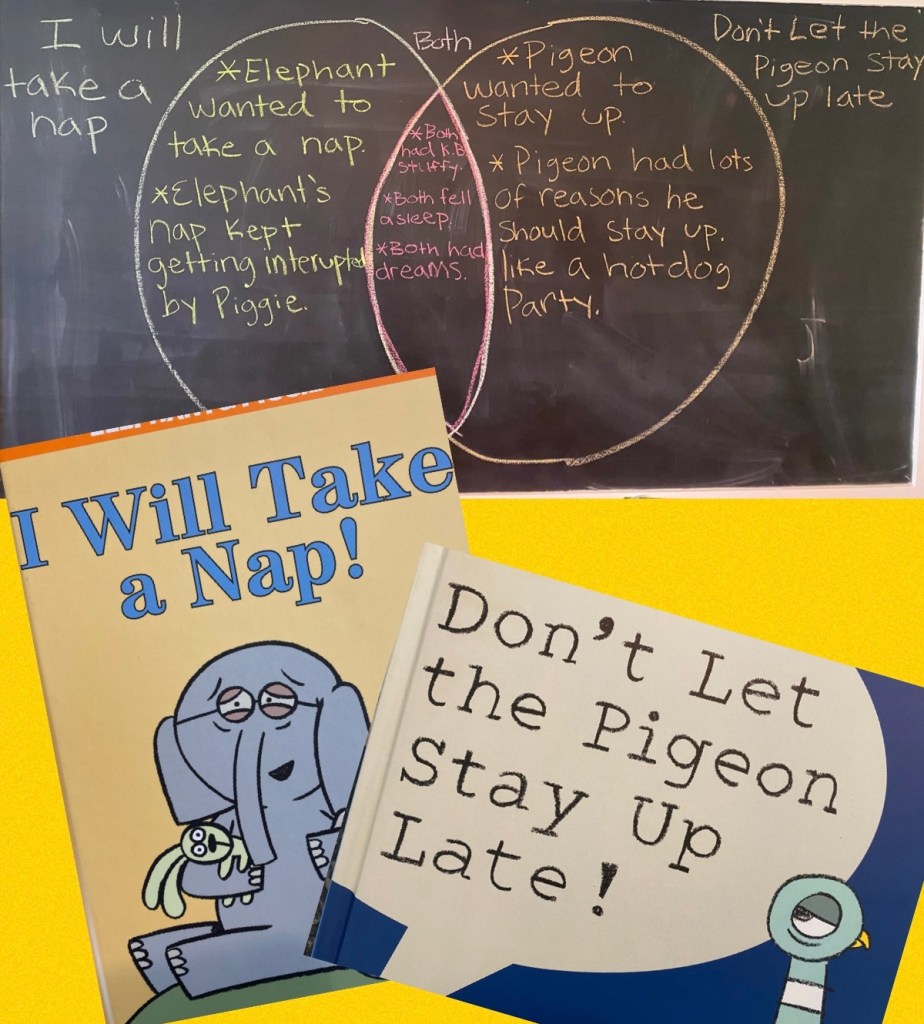 I will
take a
nap
*Elephant
wanted to
take a nap.
*Elephant's
nap kept
getting interupted
by Piggie.
Both
*Both
had K.B.
stuffy.
*Both fell
asleep.
*Both had
dreams.
*Pigeon
wanted to
stay up.
*Pigeon had lots
of reasons he
should stay up.
like a hotdog
Party.
Don't Let the
Pigeon Stay
up late
I Will Take
a Nap!
Don't Let
the Pigeon
Stay Up
Late!